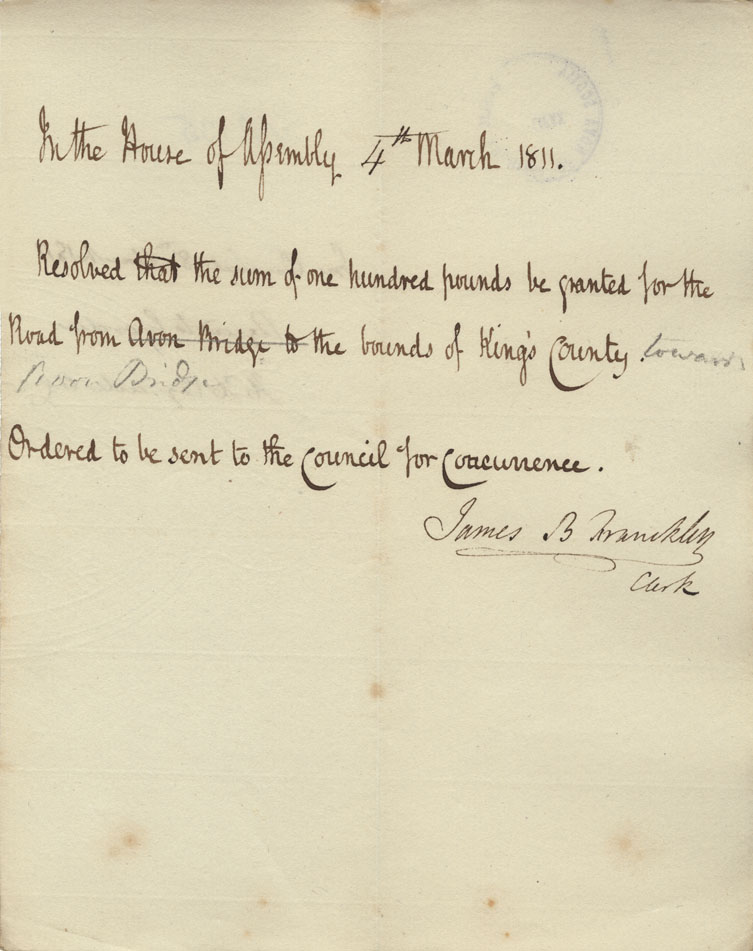 In the House of Assembly 4th March 1811.
Resolved that the sum of one hundred pounds be granted for the
Road from Avon Bridge to the bounds of King's County. towards
Avon Bridge
Ordered to be sent to the Council for Concurrence.
James B Franckley
Clerk